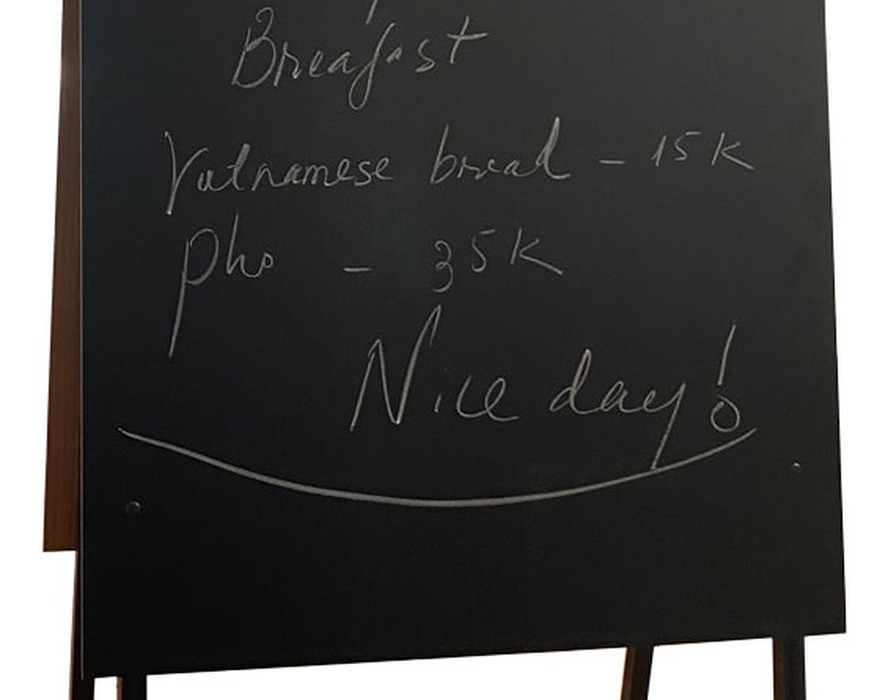 Breafast
Vietnamese bread - 15K
pho - 35K
Nice day!